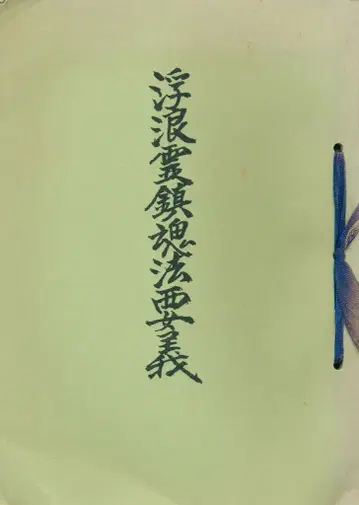 浮浪霊鎮魂法要義